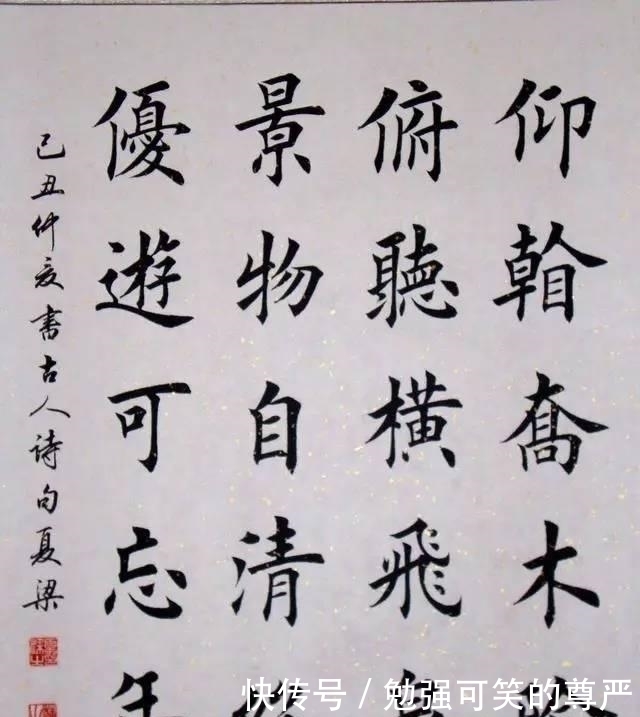 仰喬木
俯聽橫飛
景物自清
優遊可忘
己丑仲夏書古人诗句夏梁
快传号/勉强可笑的尊严